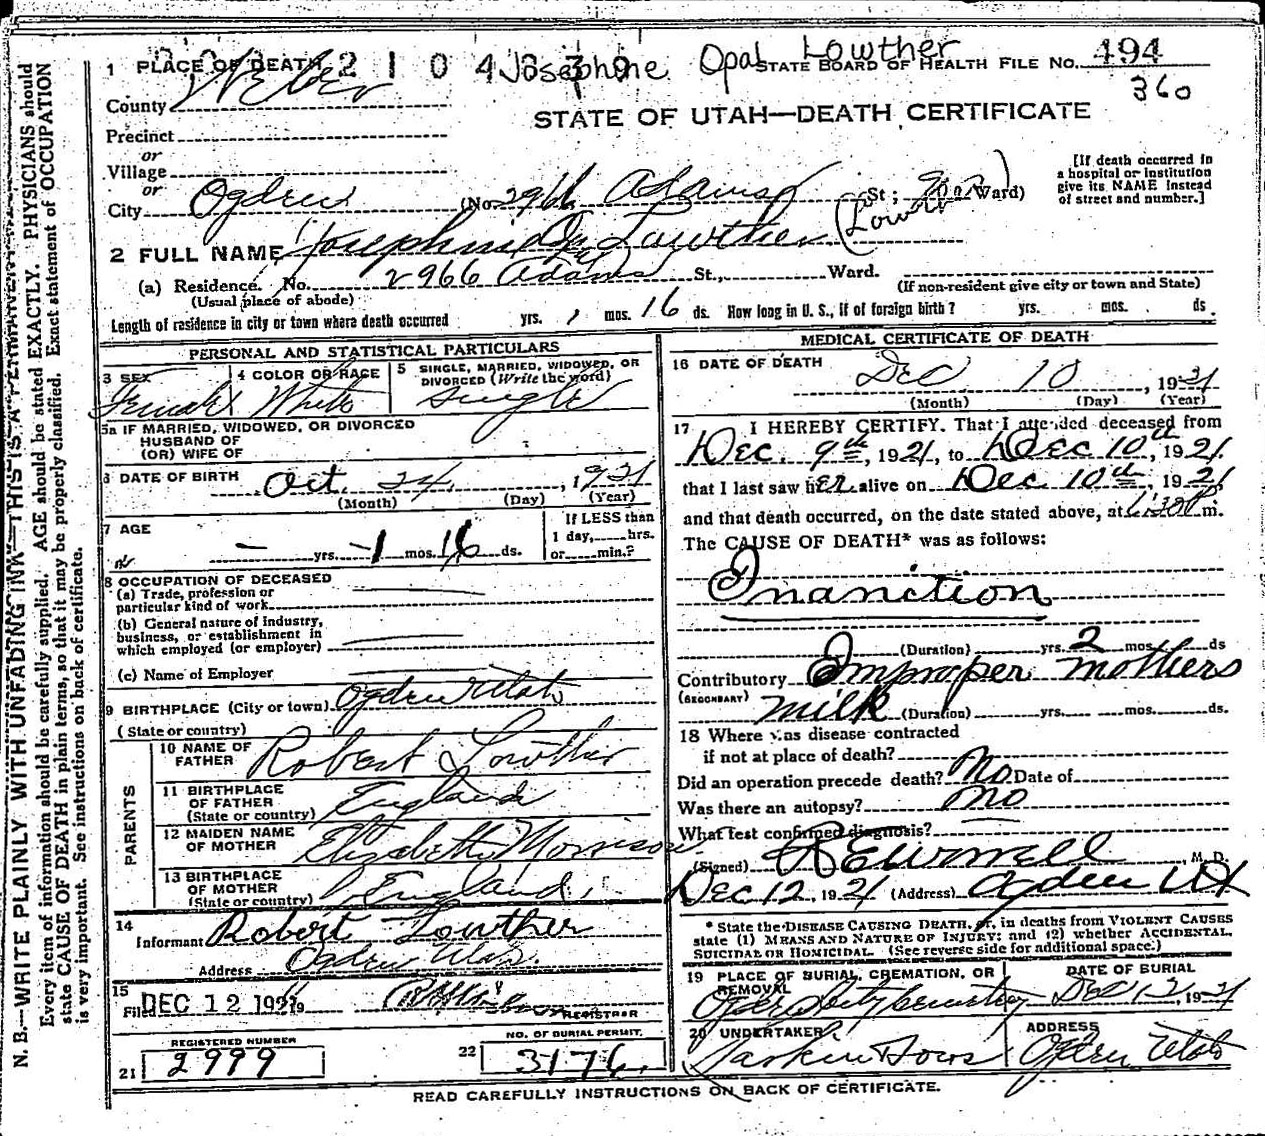 1 PLACE OF DEATH 2 1 0 4 3 3 9 Josephine Opal Lowther STATE BOARD OF HEALTH FILE No. 494
County Weber 360
STATE OF UTAH—DEATH CERTIFICATE
Precinct
or
Village
or
City Ogden (No. 2966 Adams St; Ward)
[If death occurred in
a hospital or institution
give its NAME instead
of street and number.]
2 FULL NAME Josephine Opal Lowther
(a) Residence. No. 2966 Adams St., Ward.
(Usual place of abode) (If non-resident give city or town and State)
Length of residence in city or town where death occurred yrs. 1 mos. 16 ds. How long in U. S., if of foreign birth? yrs. mos. ds.
PERSONAL AND STATISTICAL PARTICULARS
3 SEX 4 COLOR OR RACE 5 SINGLE, MARRIED, WIDOWED, OR
DIVORCED (Write the word)
Female White Single
5a IF MARRIED, WIDOWED, OR DIVORCED
HUSBAND OF
(OR) WIFE OF
6 DATE OF BIRTH Oct. 24, 1921
(Month) (Day) (Year)
7 AGE
— yrs. 1 mos. 16 ds.
If LESS than
1 day, hrs.
or min.?
8 OCCUPATION OF DECEASED
(a) Trade, profession or
particular kind of work
(b) General nature of industry,
business, or establishment in
which employed (or employer)
(c) Name of Employer
9 BIRTHPLACE (City or town) Ogden Utah
(State or country)
PARENTS
10 NAME OF
FATHER Robert Lowther
11 BIRTHPLACE
OF FATHER
(State or country) England
12 MAIDEN NAME
OF MOTHER Elizabeth Morrison
13 BIRTHPLACE
OF MOTHER
(State or country) England
14
Informant Robert Lowther
Address Ogden Utah
15
Filed DEC 12 1921
REGISTRAR
REGISTERED NUMBER
21 2999
NO. OF BURIAL PERMIT.
22 3176
MEDICAL CERTIFICATE OF DEATH
16 DATE OF DEATH
Dec 10, 1921
(Month) (Day) (Year)
17 I HEREBY CERTIFY. That I attended deceased from
Dec. 9th, 1921, to Dec 10th, 1921.
that I last saw her alive on Dec 10th, 1921
and that death occurred, on the date stated above, at m.
The CAUSE OF DEATH* was as follows:
Inanction
(Duration) yrs. 2 mos. ds
Contributory Improper mothers
(SECONDARY)
milk (Duration) yrs. mos. ds.
18 Where was disease contracted
if not at place of death?
Did an operation precede death? No Date of
Was there an autopsy? no
What test confirmed diagnosis?
(Signed) M. D.
Dec 12, 1921 (Address) Ogden Ut
* State the DISEASE CAUSING DEATH, or, in deaths from VIOLENT CAUSES
state (1) MEANS AND NATURE OF INJURY; and (2) whether ACCIDENTAL,
SUICIDAL OR HOMICIDAL. (See reverse side for additional space.)
19 PLACE OF BURIAL, CREMATION, OR
REMOVAL
Ogden City Cemetery
DATE OF BURIAL
Dec 12, 1921
20 UNDERTAKER
Larkin & Sons
ADDRESS
Ogden Utah
READ CAREFULLY INSTRUCTIONS ON BACK OF CERTIFICATE.
N. B.—WRITE PLAINLY WITH UNFADING INK—THIS IS A PERMANENT
Every item of information should be carefully supplied. AGE should be stated EXACTLY. PHYSICIANS should
state CAUSE OF DEATH in plain terms, so that it may be properly classified. Exact statement of OCCUPATION
is very important. See instructions on back of certificate.